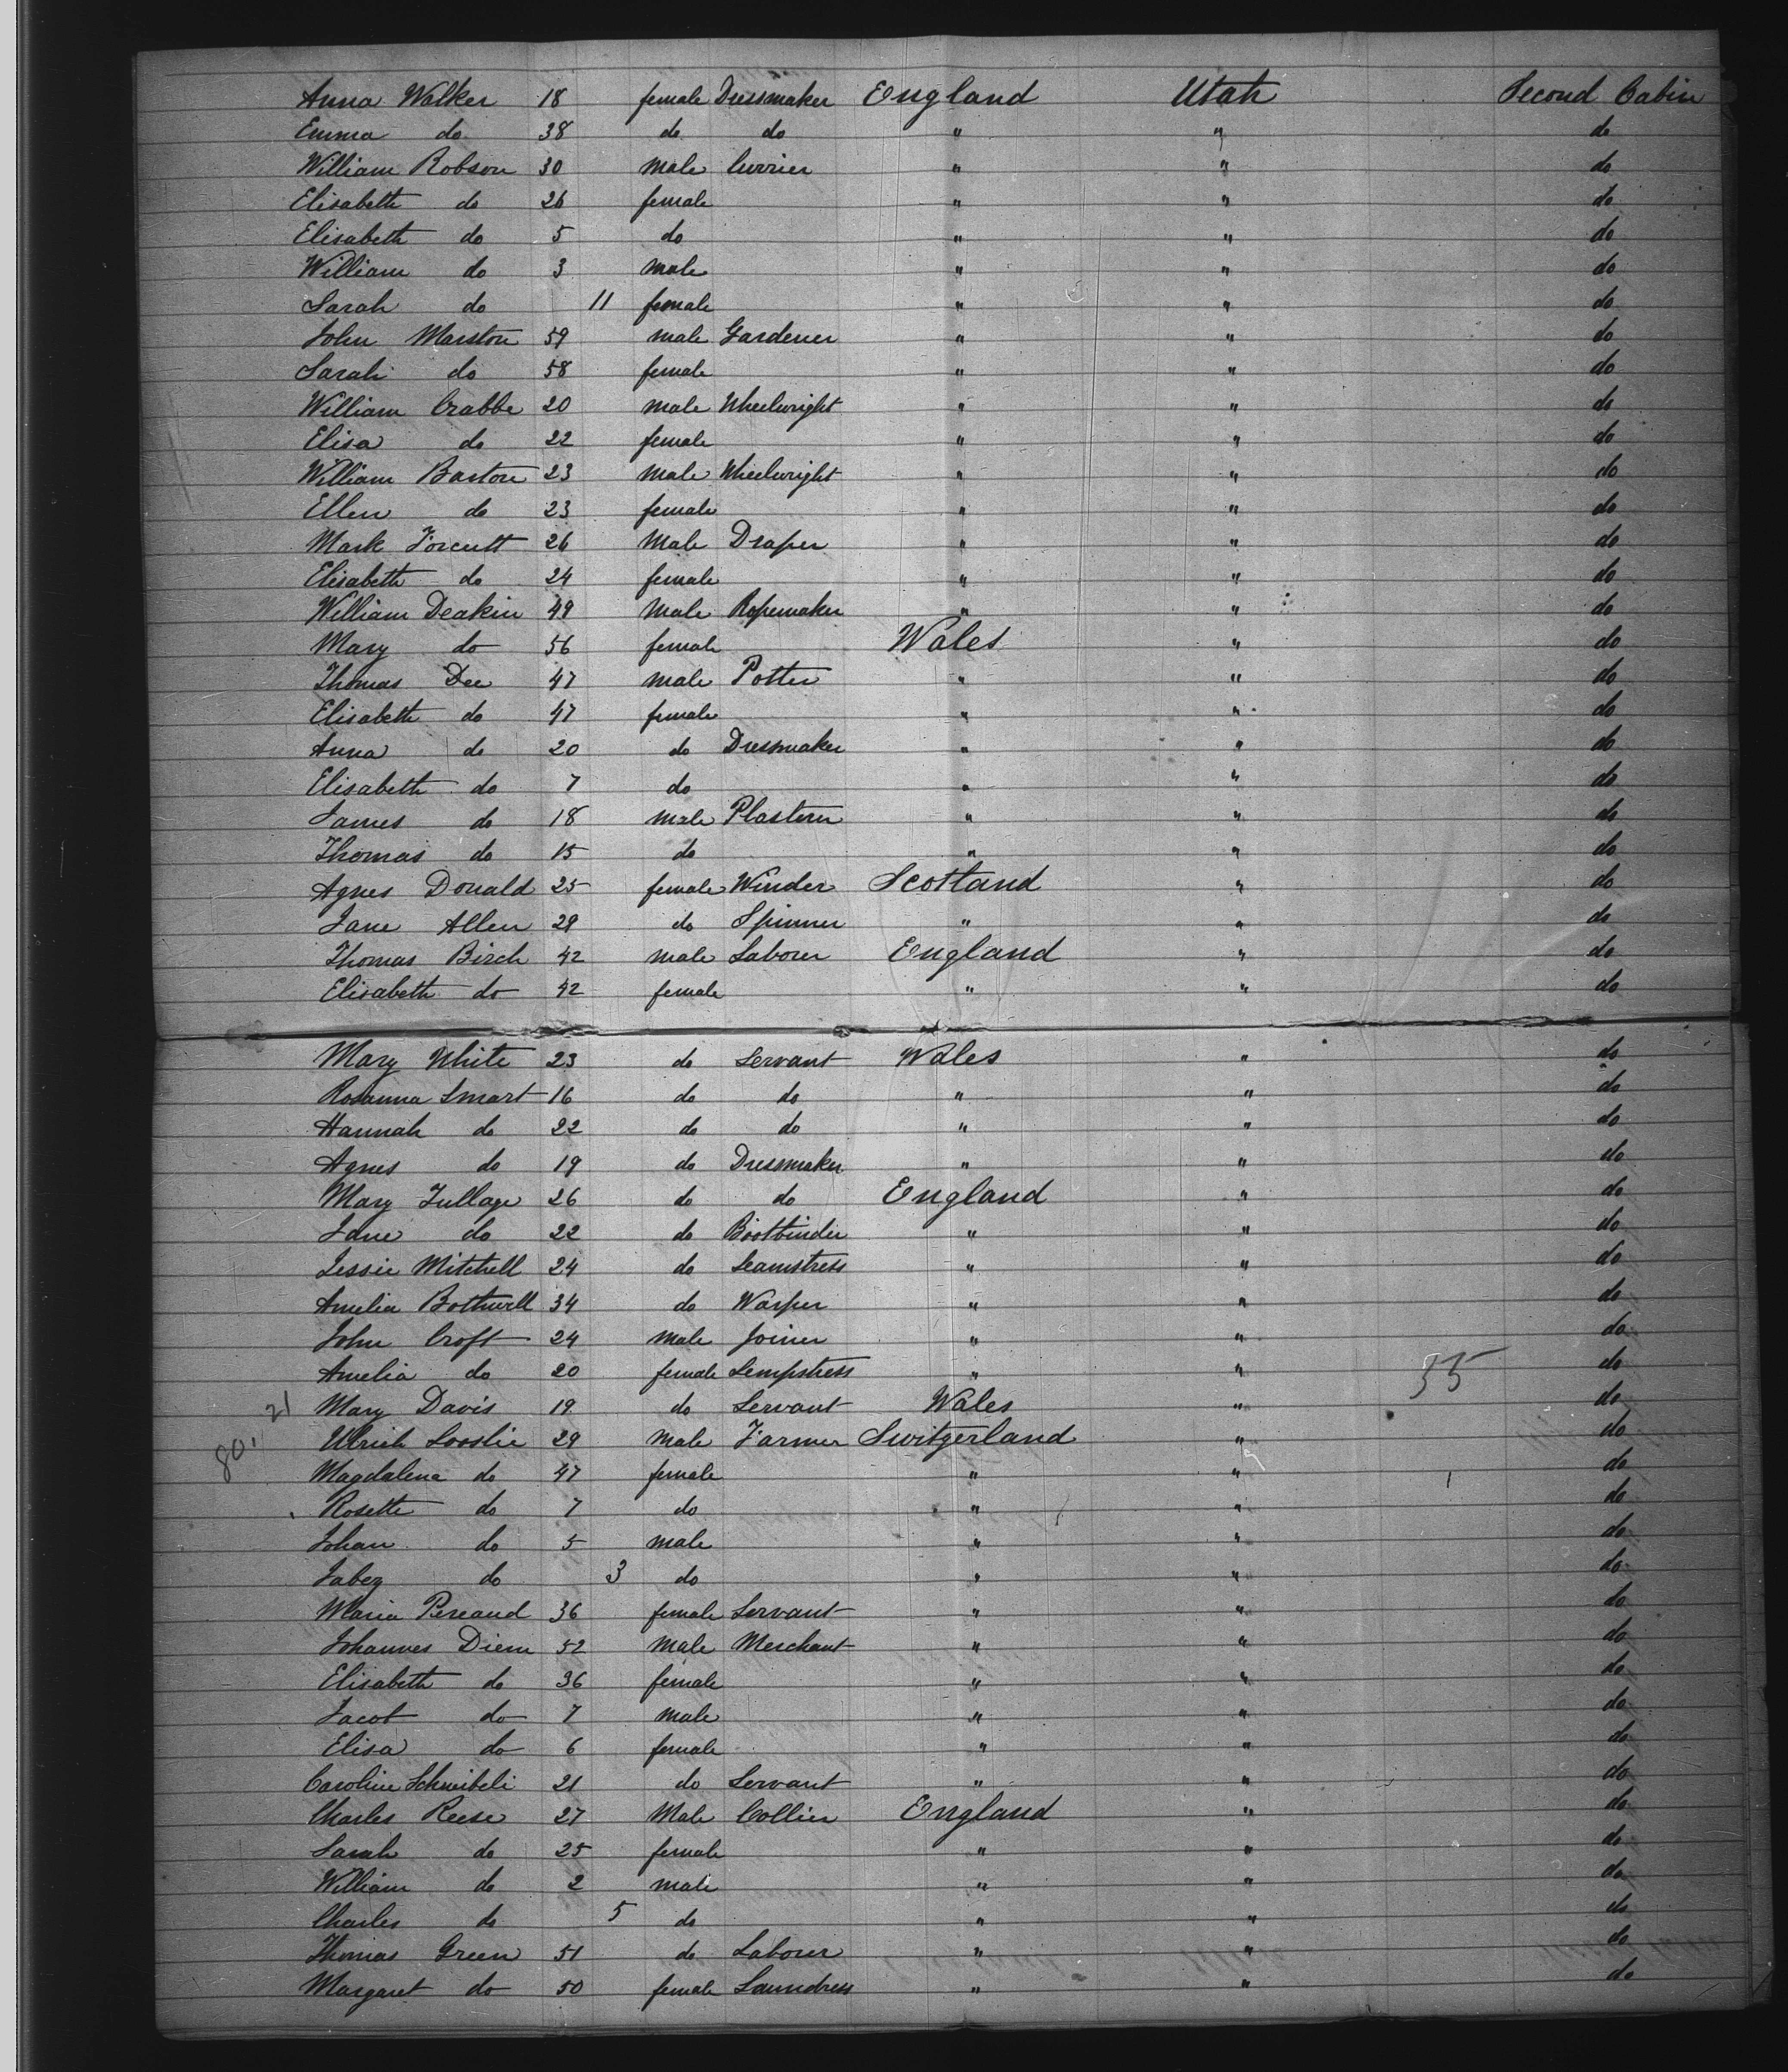 Anna Walker 18 female Dressmaker England Utah Second Cabin
Emma do 38 do do " " do
William Robson 30 male Currier " " do
Elisabeth do 26 female " " do
Elisabeth do 5 do " " do
William do 3 male " " do
Sarah do 11 female " " do
John Marston 59 male Gardener " " do
Sarah do 58 female " " do
William Crabbe 20 male Wheelwright " " do
Elisa do 22 female " " do
William Barton 23 male Wheelwright " " do
Ellen do 23 female " " do
Mark Forcutt 26 male Draper " " do
Elisabeth do 24 female " " do
William Deakin 49 male Ropemaker " " do
Mary do 56 female Wales " do
Thomas Dee 47 male Potter " " do
Elisabeth do 47 female " " do
Anna do 20 do Dressmaker " " do
Elisabeth do 7 do " " do
James do 18 male Plasterer " " do
Thomas do 15 do " " do
Agnes Donald 25 female Winder Scotland " do
Jane Allen 29 do Spinner " " do
Thomas Birch 42 male Laborer England " do
Elisabeth do 42 female " " do
Mary White 23 do Servant Wales " do
Rosanna Smart 16 do do " " do
Hannah do 22 do do " " do
Agnes do 19 do Dressmaker " " do
Mary Tullage 26 do do England " do
Jane do 22 do Bootbinder " " do
Jessie Mitchell 24 do Seamstress " " do
Amelia Bothwell 34 do Warper " " do
John Croft 24 male Joiner " " do
Amelia do 20 female Sempstress " " 35 do
Mary Davis 19 do Servant Wales " do
80,, 21
Ulrich Looslie 29 male Farmer Switzerland " do
Magdalena do 47 female " " do
Rosette do 7 do " " do
Johan do 5 male " " do
Jabez do 3 do " " do
Maria Pereaud 36 female Servant " " do
Johannes Diem 52 male Merchant " " do
Elisabeth do 36 female " " do
Jacob do 7 male " " do
Elisa do 6 female " " do
Caroline Schneibeli 21 do Servant " " do
Charles Reese 27 Male Collier England " do
Sarah do 25 female " " do
William do 2 male " " do
Charles do 5 do " " do
Thomas Green 51 do Laborer " " do
Margaret do 50 female Laundress " " do